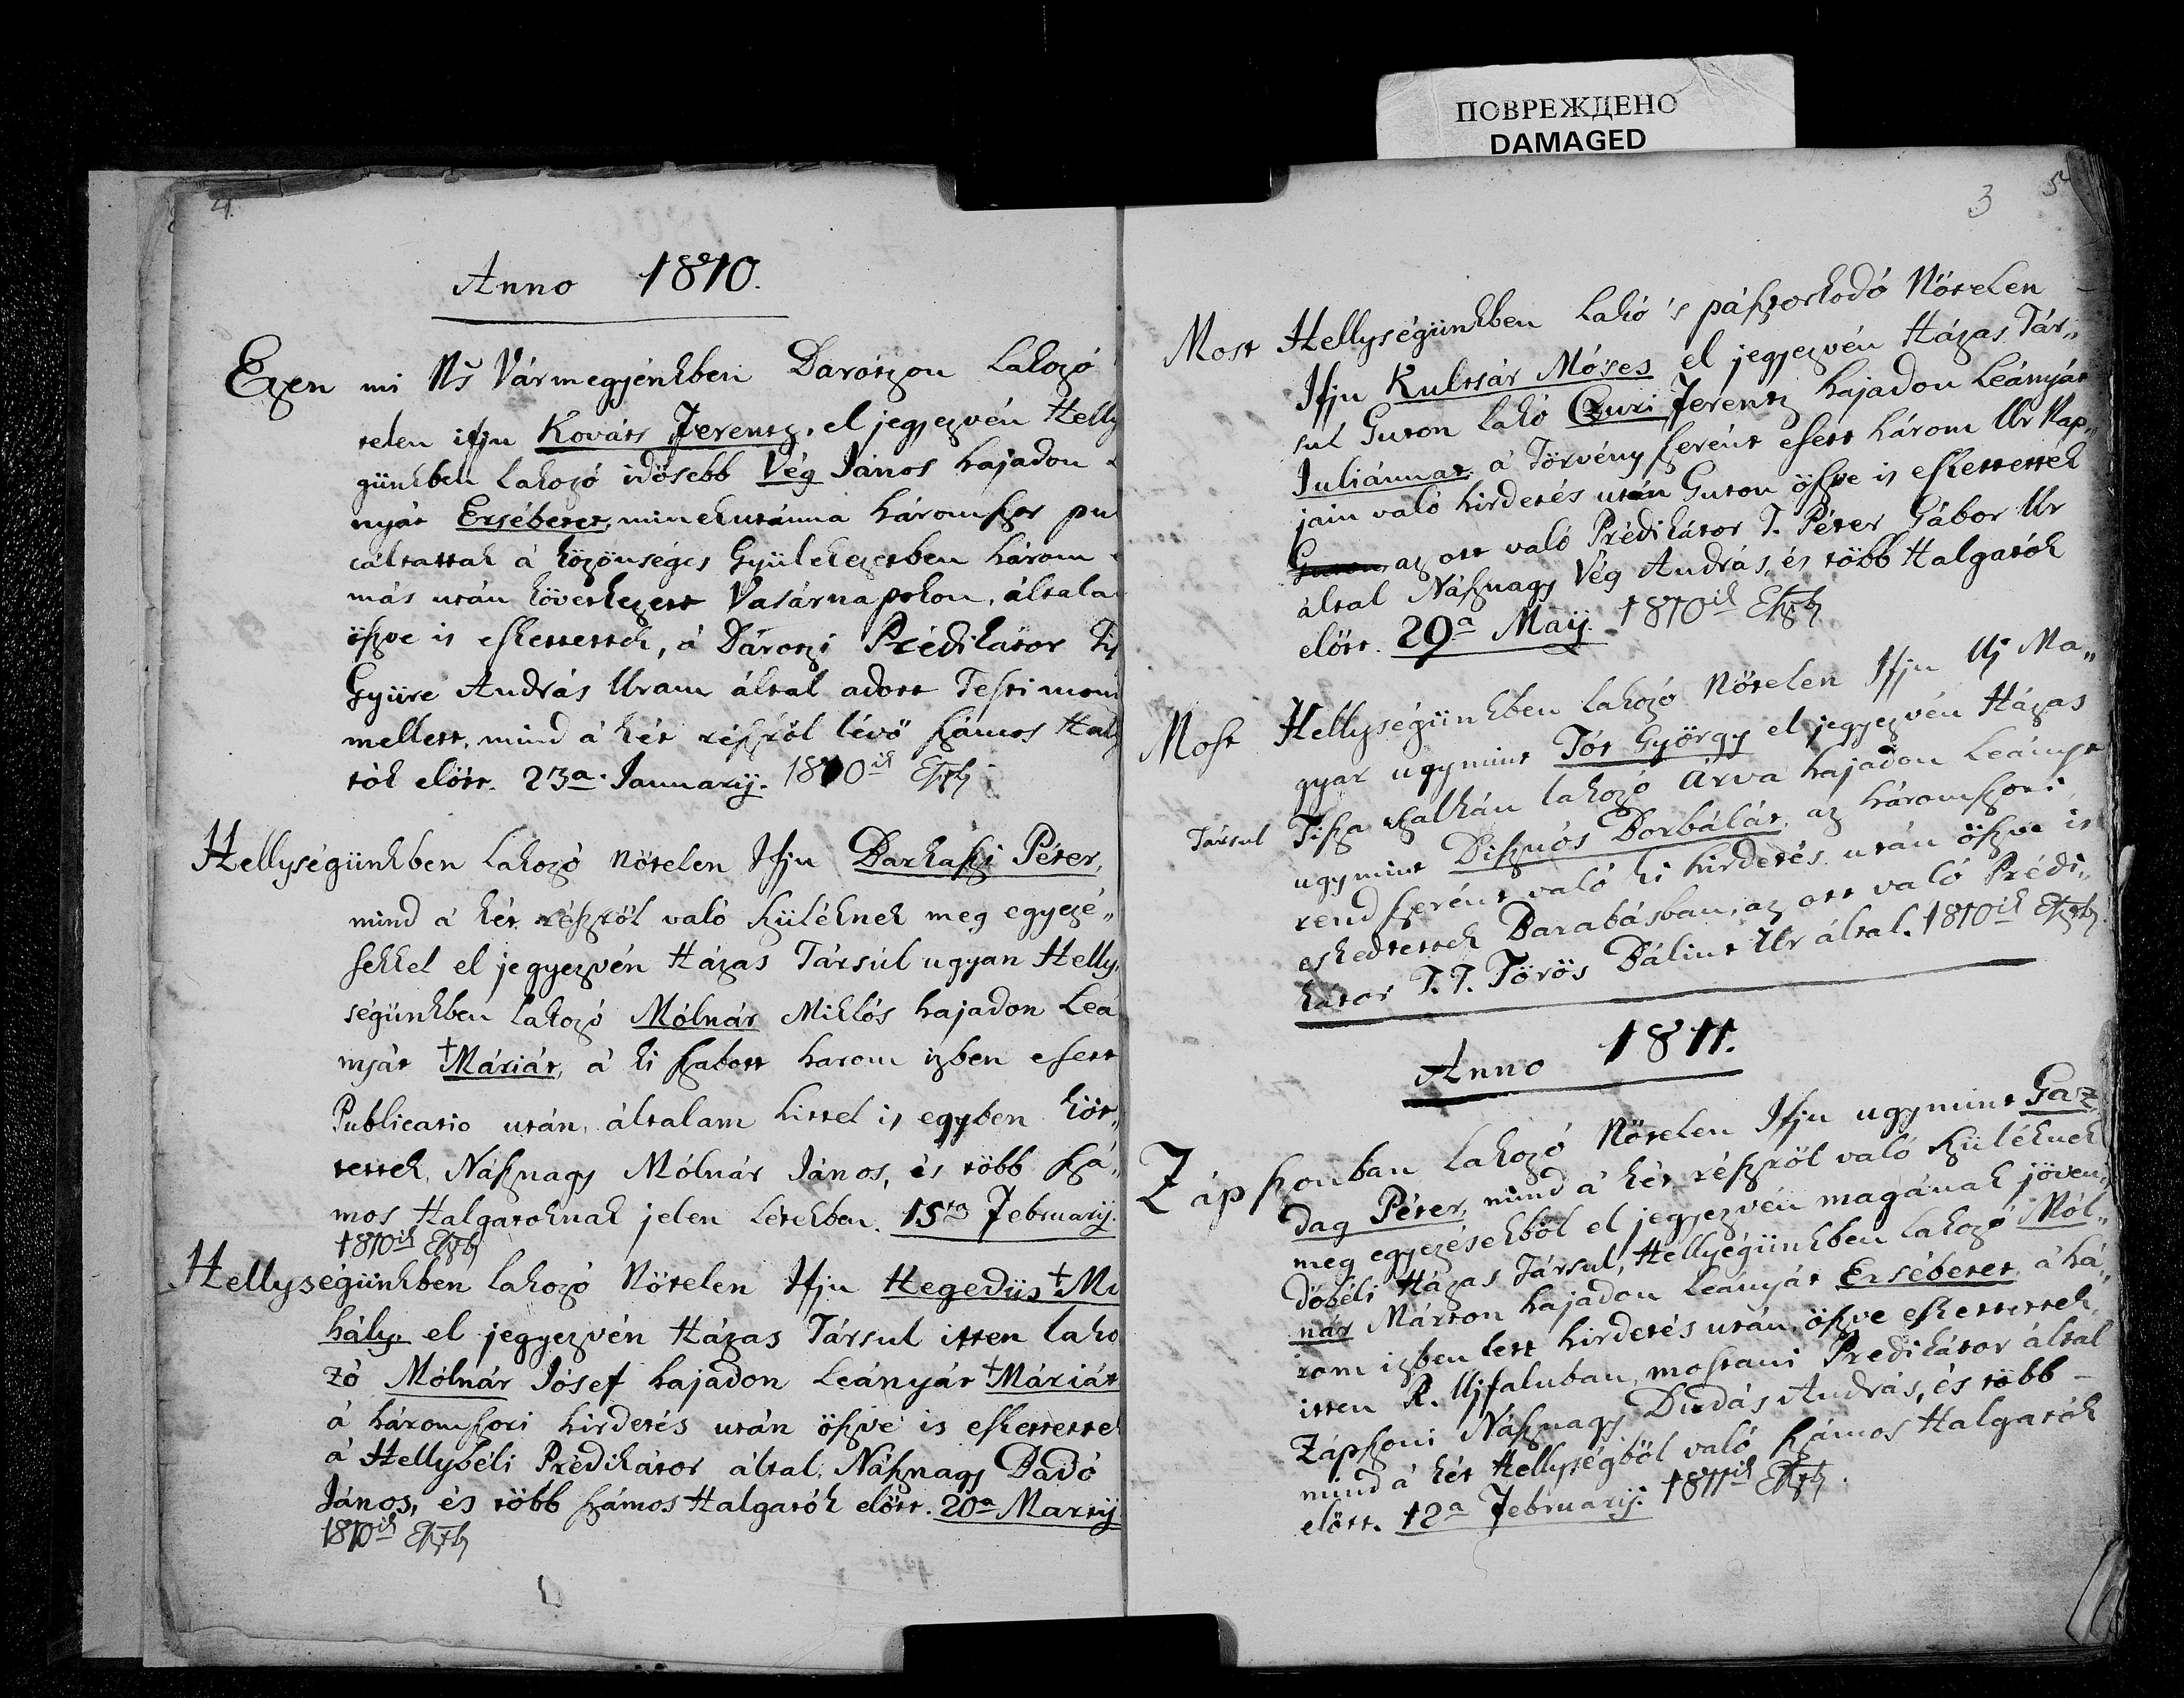 ПОВРЕЖДЕНО
DAMAGED
4.
Anno 1810.
Ezen mi Ns Vármegyénkben Darótzon Lakozó
telen ifju Kováts Ferentz, el jegyezvén Helly
günkben Lakozó idösebb Vég János hajadon
nyát Ersébetet, minekutánna háromszor pu
cáltattak á közönséges Gyülekezetben három
más után következett Vasárnapokon, általa
öszve is eskettettek, á Dárotzi Prédikátor
Gyüre András Uram által adott Testimon
mellett, mind á két részröl lévö számos Hal
tók elött. 23a. Januarij. 1810ik Eszt.
Hellységünkben Lakozó nötelen Ifju Darkaszi Péter,
mind á két részröl való szüléknek meg egyezé„
sekkel el jegyezvén Házas Társúl ugyan Helly„
ségünkben lakozó Mólnár Miklós hajadon Leá
nyát †Máriát, á ki szabott harom izben esett
Publicatio után, általam hittel is egyben köt„
tettek, Násznagy Mólnár János, és több szá„
mos Halgatoknak jelen létekben. 15ta Februarij.
1810ik Eszt.
Hellységünkben lakozó Nötelen Ifju Hegedüs †Mi
hály. el jegyezvén Házas Társul itten lako
zó Mólnár Jósef hajadon Leányát †Máriát
á háromszori hirdetés után öszve is eskettettek
á Hellybéli Prédikátor által, Násznagy Dadó
János, és több számos Halgatók elött. 20a Martij
1810ik Eszt.
3 5
Most Hellységünkben Lakó 's pásztorkodó Nötelen
Ifju Kultsár Móses el jegyezvén Házas Tár„
sul Guton lakó Czuri Ferentz hajadon Leányát
Juliánnat á Törvény szerént esett három Ur Nap„
jain való hirdetés után Guton öszve is eskettettek
Guton, az ott való Prédikátor T. Péter Gábor Ur
által Násznagy Vég András, és több Halgatók
elött. 29a Maij. 1810ik Eszt.
Most Hellységünkben lakozó Nötelen Ifju Uj Ma„
gyar ugymint Tót György el jegyezvén Házas
Társul Tisza szalkán lakozó Árva hajadon Leányt
ugymint Disznós Borbálát, az háromszori
rend szerént való ki hirdetés után öszve is
eskedtettek Barabásban, az ott való Prédi„
kátor T. T. Törös Bálint Ur által. 1810ik Eszt.
Anno 1811.
Zápszonban lakozó Nötelen Ifju ugymint Gaz
dag Péter, mind á két részröl való szüléknek
meg egyezésekböl el jegyezvén magának jöven„
döbéli Házas Társul, Hellységünkben lakozó Mól„
nár Márton hajadon Leányát Ersébetet á há„
rom izben lett hirdetés után, öszve eskettettek,
itten R. Ujfaluban, mostani Predikátor által
Zápszoni Násznagy Dudás András, és több
mind á két Hellységböl való számos Halgatók
elött. 12a Februarij. 1811ik Eszt.